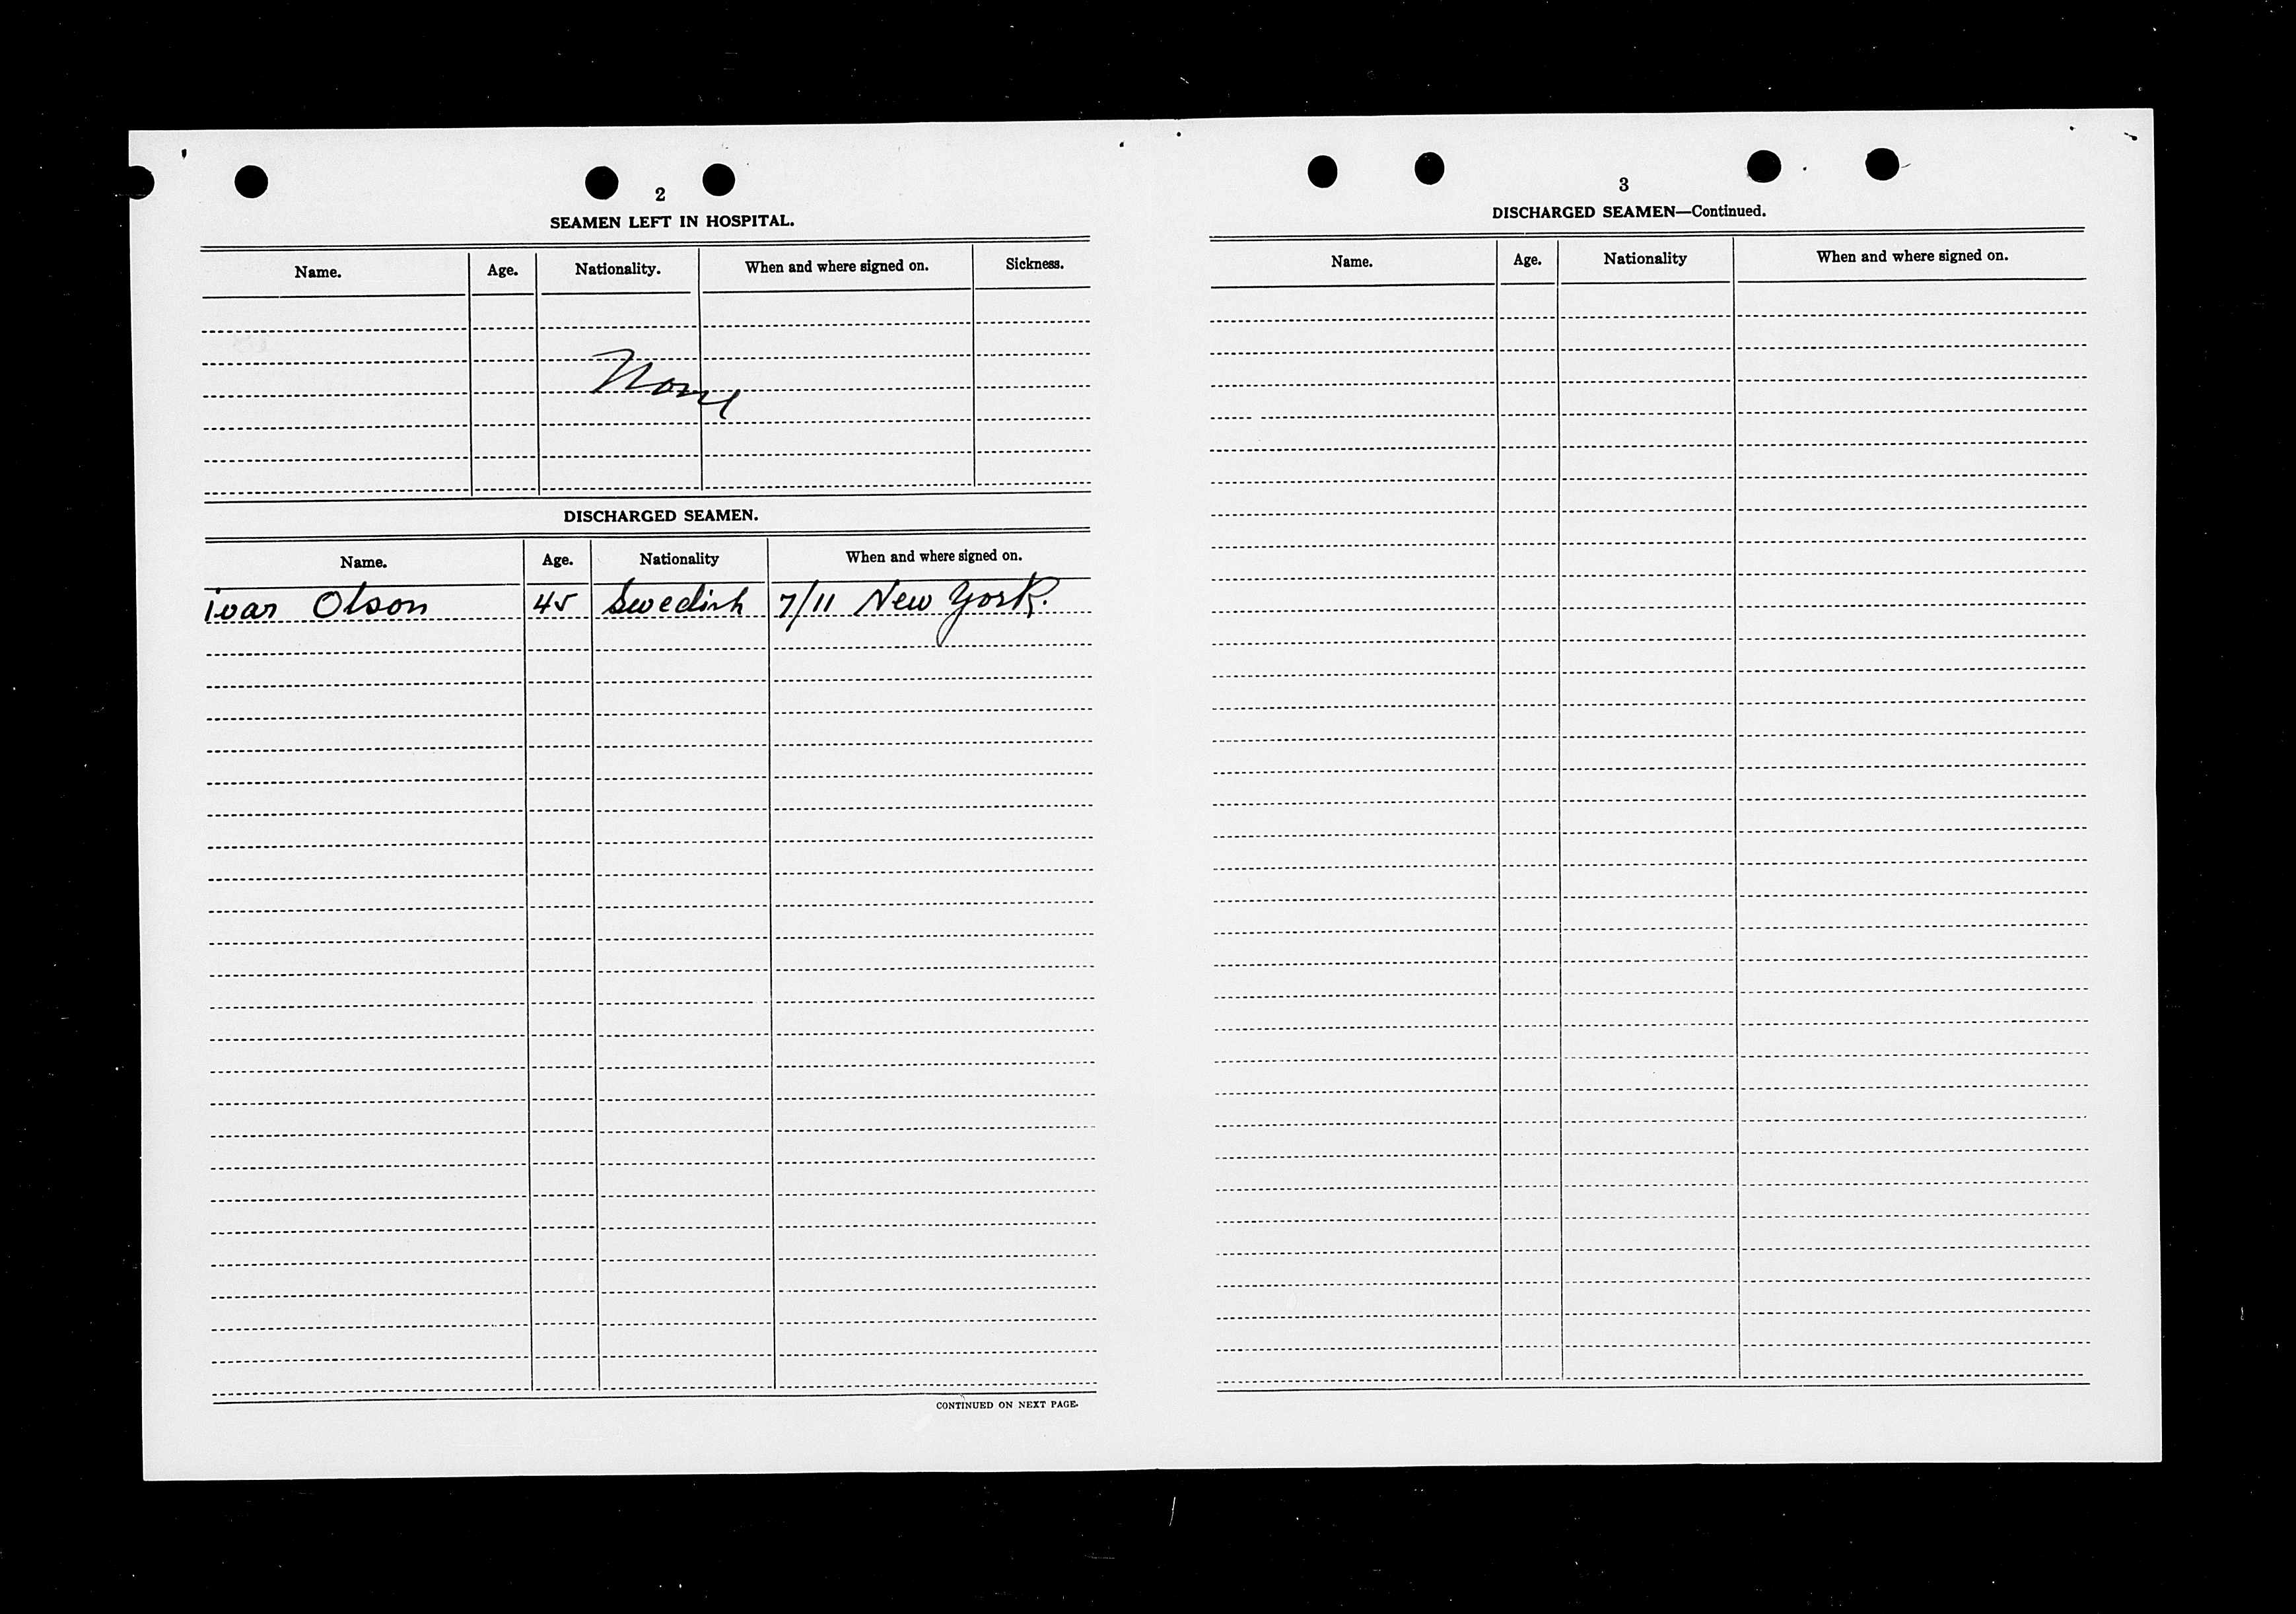 2
SEAMEN LEFT IN HOSPITAL.
Name. Age. Nationality. When and where signed on. Sickness.
None
DISCHARGED SEAMEN.
Name. Age. Nationality When and where signed on.
ivar Olson 45 Swedish 7/11 New York.
CONTINUED ON NEXT PAGE.
3
DISCHARGED SEAMEN—Continued.
Name. Age. Nationality When and where signed on.